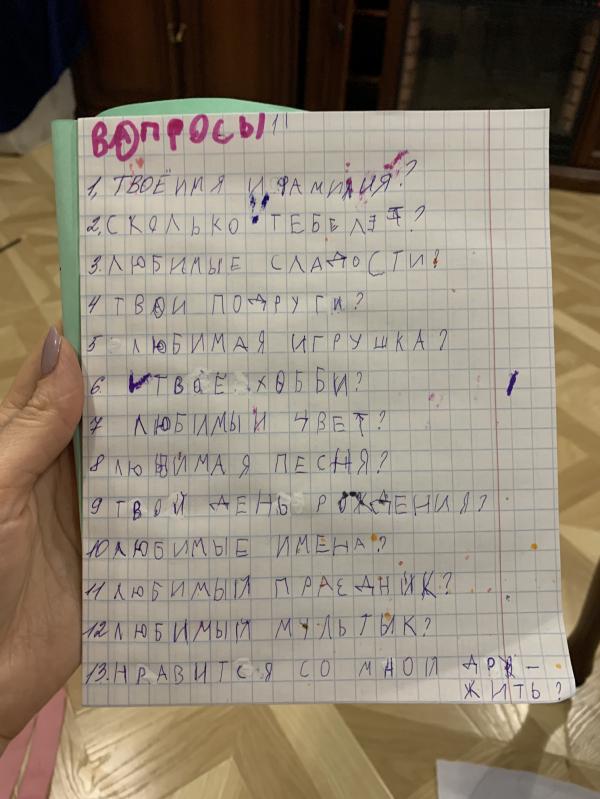 ВОПРОСЫ!!
1, ТВОЁ ИМЯ И ФАМИЛИЯ?
2, СКОЛЬКО ТЕБЕ ЛЕТ?
3. ЛЮБИМЫЕ СЛАДОСТИ?
4 ТВОИ ПОДРУГИ?
5 ЛЮБИМАЯ ИГРУШКА?
6. ТВОЁ ХОББИ?
7 ЛЮБИМЫЙ ЧВЕТ?
8 ЛЮБИМАЯ ПЕСНЯ?
9 ТВОЙ ДЕНЬ РОЖДЕНИЯ?
10 ЛЮБИМЫЕ ИМЕНА?
11 ЛЮБИМЫЙ ПРАЕДНИК?
12 ЛЮБИМЫЙ МУЛЬТЫК?
13. НРАВИТСЯ СО МНОЙ ДРУ-
ЖИТЬ?